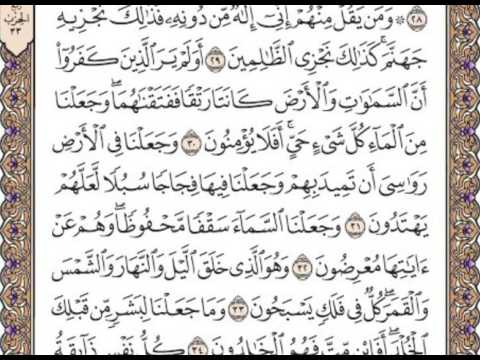 ربع
الحزب
٣٣
٢٨ ۞ وَمَن يَقُلْ مِنْهُمْ إِنِّىٓ إِلَٰهٌ مِّن دُونِهِۦ فَذَٰلِكَ نَجْزِيهِ
جَهَنَّمَ ۚ كَذَٰلِكَ نَجْزِى ٱلظَّٰلِمِينَ ٢٩ أَوَلَمْ يَرَ ٱلَّذِينَ كَفَرُوٓا۟
أَنَّ ٱلسَّمَٰوَٰتِ وَٱلْأَرْضَ كَانَتَا رَتْقًا فَفَتَقْنَٰهُمَا ۖ وَجَعَلْنَا
مِنَ ٱلْمَآءِ كُلَّ شَىْءٍ حَىٍّ ۖ أَفَلَا يُؤْمِنُونَ ٣٠ وَجَعَلْنَا فِى ٱلْأَرْضِ
رَوَٰسِىَ أَن تَمِيدَ بِهِمْ وَجَعَلْنَا فِيهَا فِجَاجًا سُبُلًا لَّعَلَّهُمْ
يَهْتَدُونَ ٣١ وَجَعَلْنَا ٱلسَّمَآءَ سَقْفًا مَّحْفُوظًا ۖ وَهُمْ عَنْ
ءَايَٰتِهَا مُعْرِضُونَ ٣٢ وَهُوَ ٱلَّذِى خَلَقَ ٱلَّيْلَ وَٱلنَّهَارَ وَٱلشَّمْسَ
وَٱلْقَمَرَ ۖ كُلٌّ فِى فَلَكٍ يَسْبَحُونَ ٣٣ وَمَا جَعَلْنَا لِبَشَرٍ مِّن قَبْلِكَ
ٱلْخُلْدَ ۖ أَفَإِي۟ن مِّتَّ فَهُمُ ٱلْخَٰلِدُونَ ٣٤ كُلُّ نَفْسٍ ذَآئِقَةُ